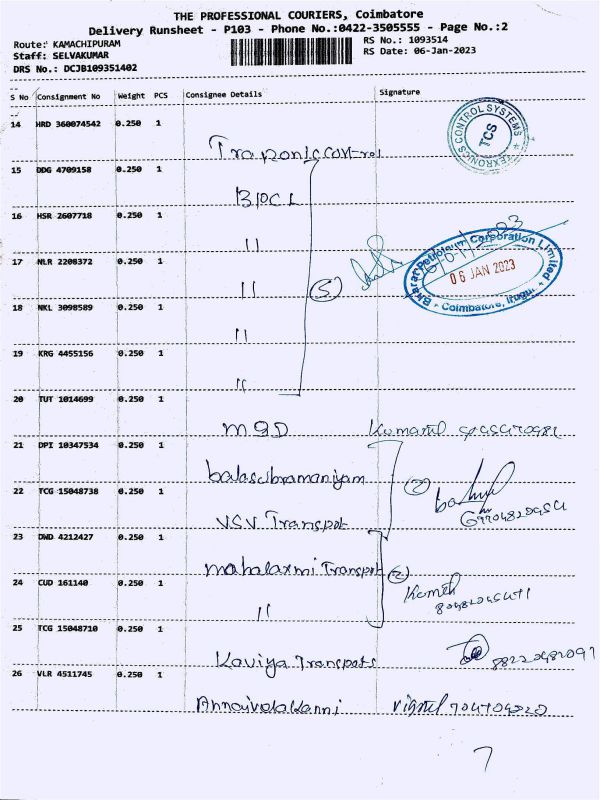 THE PROFESSIONAL COURIERS, Coimbatore
Delivery Runsheet - P103 - Phone No.:0422-3505555 - Page No.:2
Route: KAMACHIPURAM
RS No.: 1093514
Staff: SELVAKUMAR
RS Date: 06-Jan-2023
DRS No.: DCJB109351402
S No Consignment No Weight PCS Consignee Details Signature
14 HRD 360074542 0.250 1
TEXRONICS CONTROL SYSTEMS
TCS
15 DDG 4709158 0.250 1 BPCL
16 HSR 2607718 0.250 1 "
17 NLR 2208372 0.250 1 "
(5)
Bharat Petroleum Corporation Limited
06 JAN 2023
Coimbatore, Irugur
18 NKL 3098589 0.250 1 "
19 KRG 4455156 0.250 1 "
20 TUT 1014699 0.250 1
21 DPI 10347534 0.250 1 balasubramaniyam
(2)
22 TCG 15048738 0.250 1 VSV Transpot
23 DWD 4212427 0.250 1 mahalaxmi Transpot
(2)
24 CUD 161140 0.250 1 "
25 TCG 15048710 0.250 1 Kaviya Transpots
26 VLR 4511745 0.250 1
7